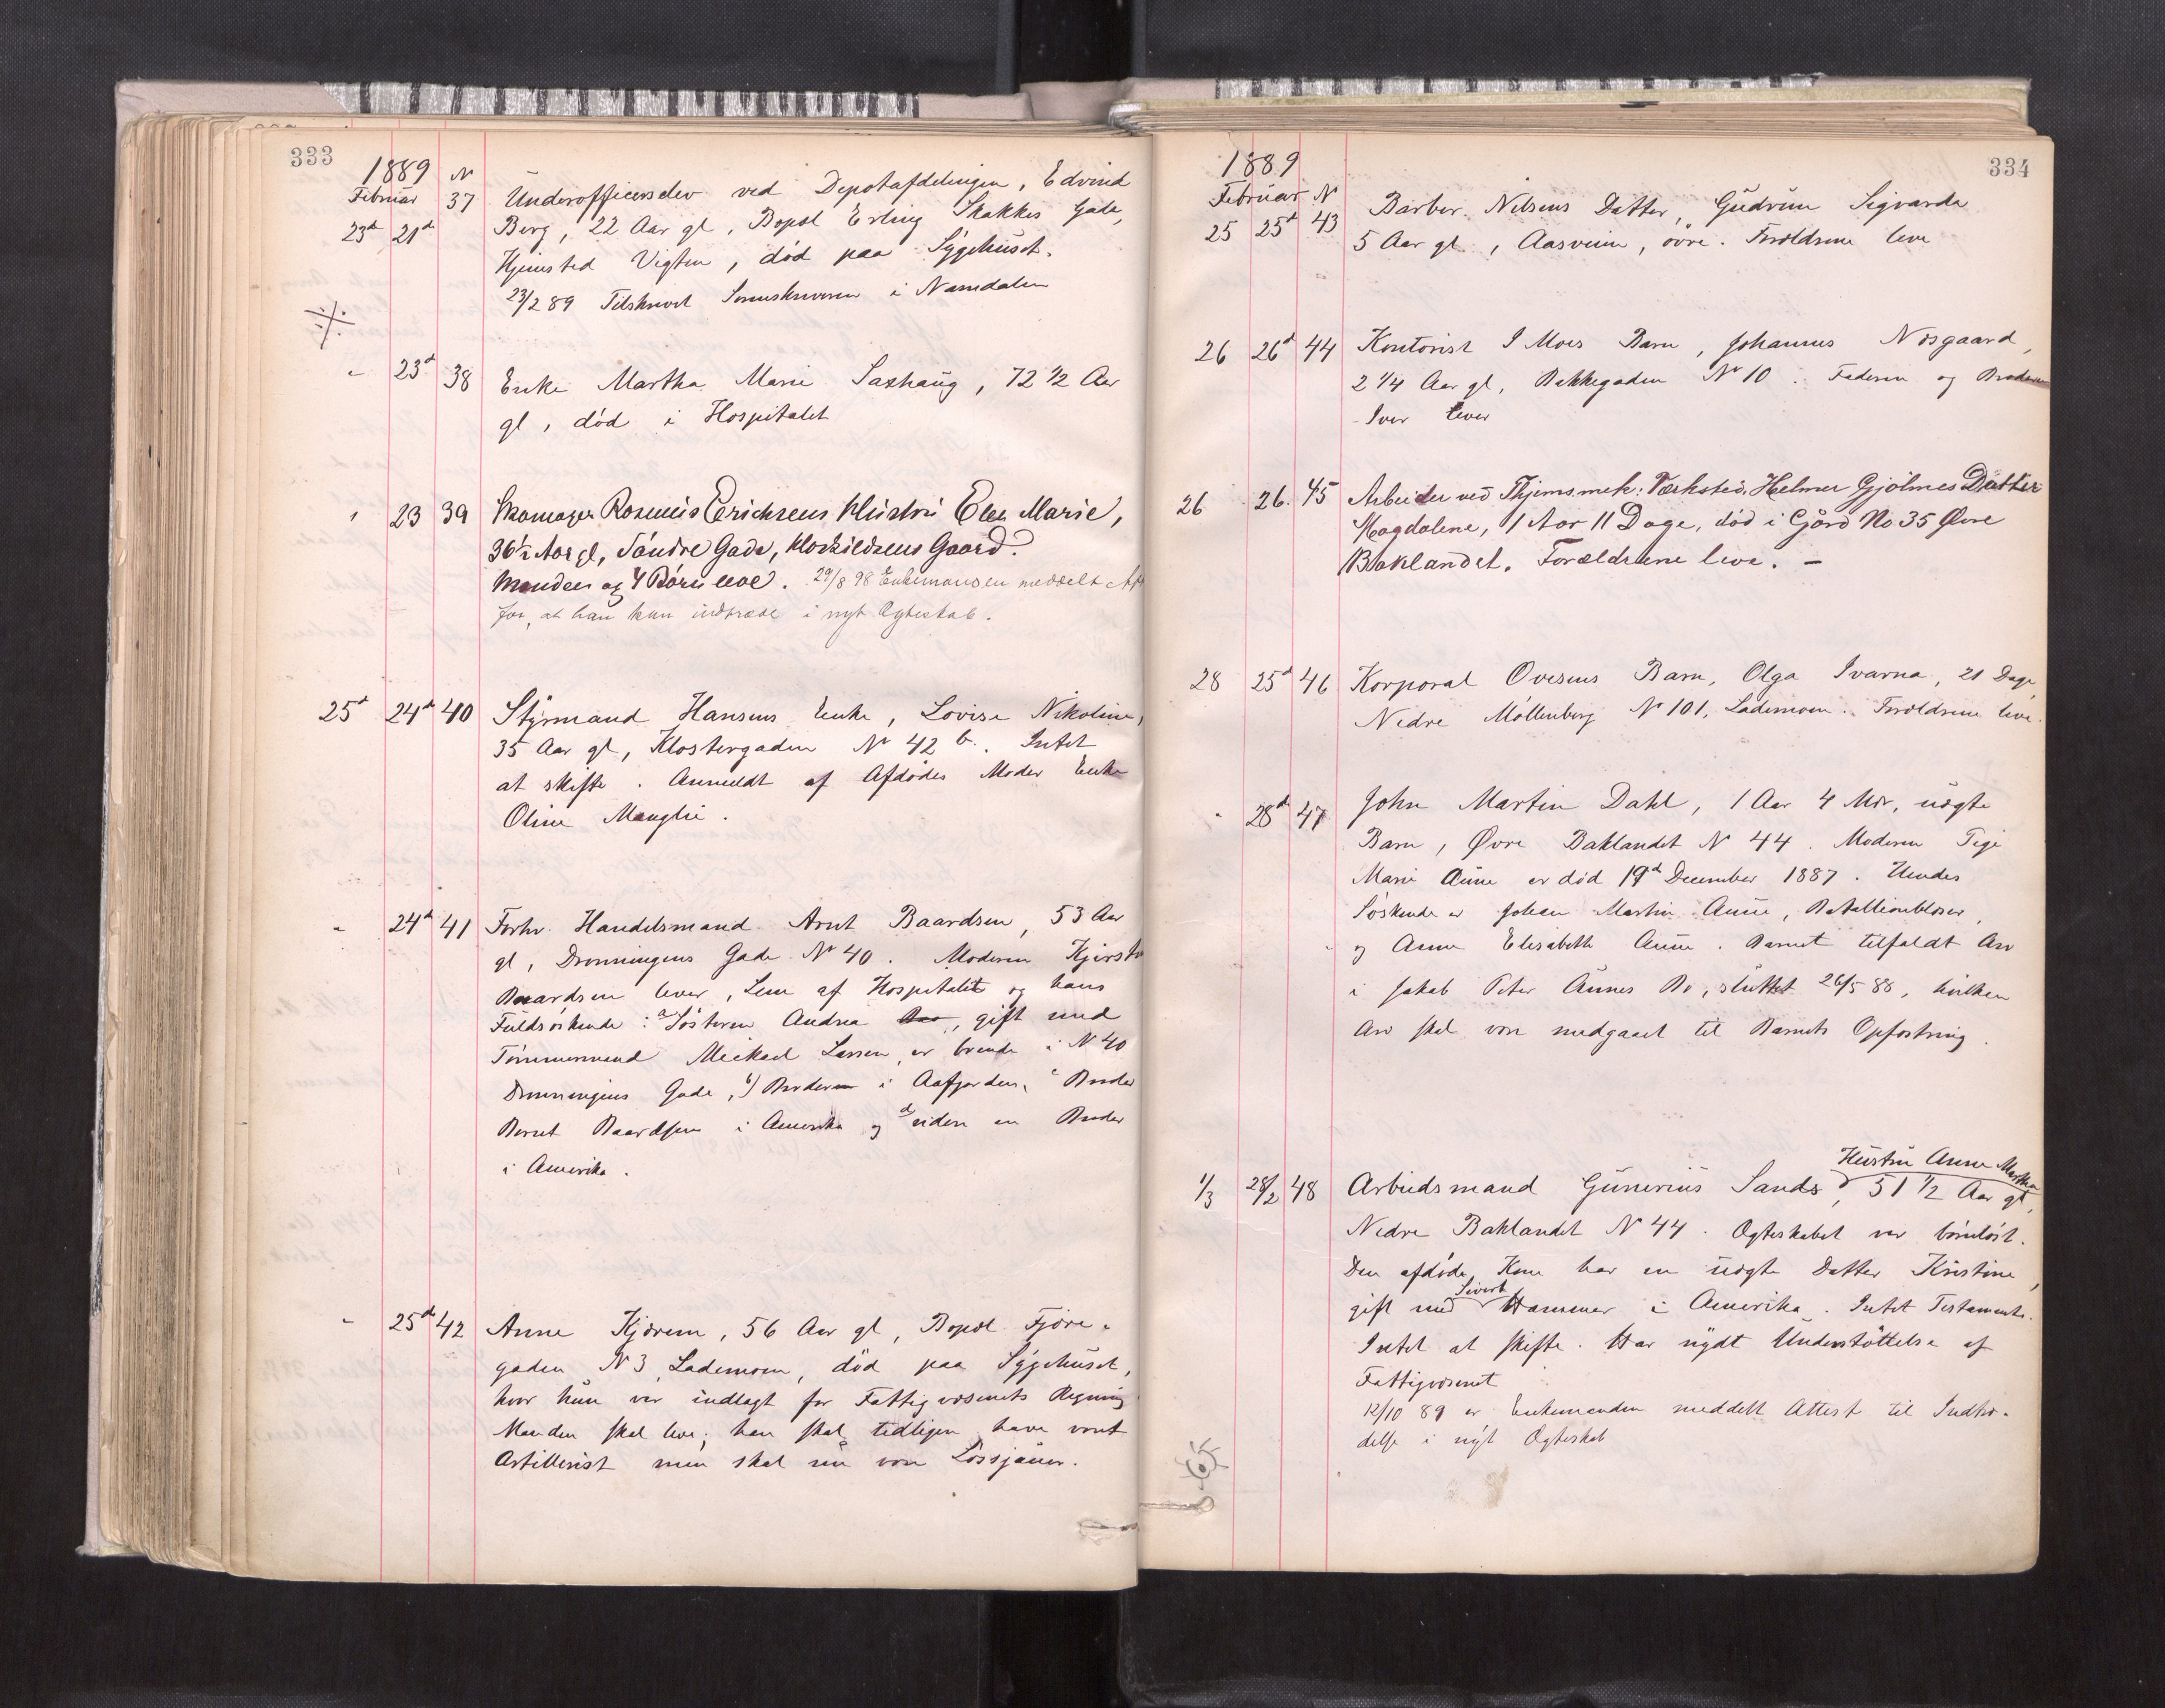 333
1889 N
Februar 37 Underofficerselev ved Depotafdelingen, Edvind
23de 21de Berg, 22 Aar gl, Bopæl Erling Skakkes Gade,
Hjemsted Vigten, död paa Sygehuset.
23/2 89 Tilskrevet Sorenskriveren i Namdalen
" 23d 38 Enke Martha Marie Saxhaug, 72 1/2 Aar
gl, död i Hospitalet
" 23 39 Skomager Rosenius Erichsens Hustru Ellen Marie,
36 1/2 Aar gl, Söndre Gade, Gaard.
Manden og 4 Börn leve. 29/8 98 Enkemanden meddelt
for, at han kan indtræde i nyt Ægteskab.
25d 24d 40 Styrmand Hansens Enke, Lovise Nikoline,
35 Aar gl, Klostergaden N 42 b. Intet
at skifte. Anmeldt af Afdödes Moder Enke
Oline
" 24d 41 Forhv. Handelsmand Arnt Baardsen, 53 Aar
gl, Dronningens Gade N 40. Moderen
Baardsen lever, Lem af Hospitalet og hans
Fuldsöskende: a Sösteren Andrea, gift med
Tömmermand Mickael Larsen, er boende i N 40
Dronningens Gade, b) Broderen i Aafjorden, c Broder
Bernt Baardsen i Amerika og d videre en Broder
i Amerika.
" 25d 42 Anne Kjörem, 56 Aar gl, Bopæl Fjære-
gaden N 3, Lademoen, död paa Sygehuset,
hvor hun var indlagt for Fattigvæsenets Regning
Manden skal leve; han skal tidligere have været
Artillerist men skal nu være Lössjauer.
334
1889
Februar N
25 25d 43 Barber Nilsens Datter, Gudrun Sigvarda
5 Aar gl, Aasveien, övre. Forældrene leve
26 26d 44 Kontorist I Moes Barn, Johannes Næsgaard,
2 1/4 Aar gl, Bakkegaden N 10. Faderen og Broderen
Iver lever
26 26. 45 Arbeider ved Thjems. mek: Værksted, Helmer Gjölmes Datter
Magdalene, 1 Aar 11 Dage, död i Gård No 35 Øvre
Baklandet. Forældrene leve. –
28 25d 46 Korporal Ovesens Barn, Olga Ivarna, 21 Dage,
Nedre Möllenberg N 101, Lademoen. Forældrene leve.
" 28d 47 John Martin Dahl, 1 Aar 4 Mdr, uægte
Barn, Øvre Baklandet N 44. Moderen Pige
Marie Aune er död 19d December 1887. Hendes
Söskende er Johan Martin Aune, Bataillionsblæser,
og Anne Elisabeth Aune. Barnet tilfaldt Arv
i Jakob Peter Aunes Bo, sluttet 26/5 88, hvilken
Arv skal være medgaaet til Barnets Opfostring.
Hustru Anne Martha
1/3 28/2 48 Arbeidsmand Gunerius Sands, 51 1/2 Aar gl,
Nedre Baklandet N 44. Ægteskabet var börnlöst.
Den afdöde Kone har en uægte Datter Kristine,
gift med Sivert Hammer i Amerika. Intet Testamente.
Intet at skifte. Har nydt Understöttelse af
Fattigvæsenet
12/10 89 er Enkemanden meddelt Attest til Indtræ-
delse i nyt Ægteskab